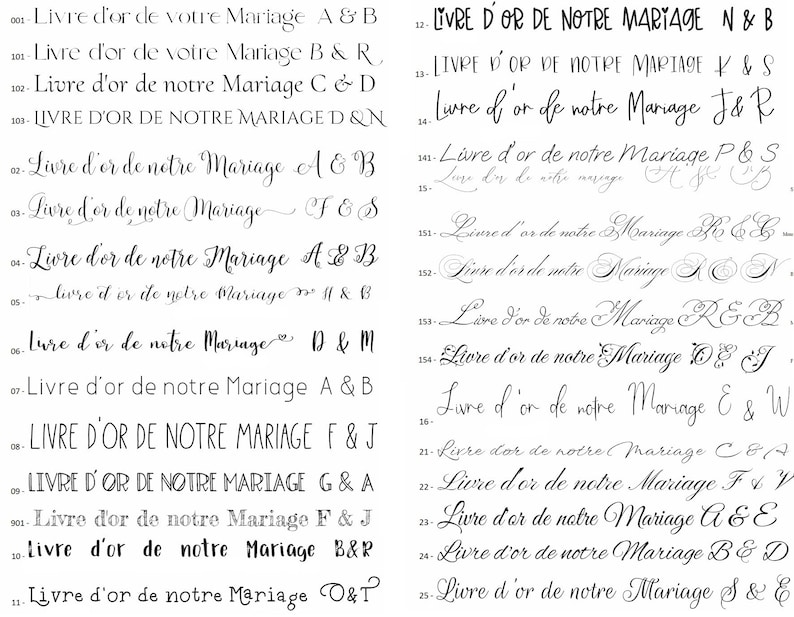 001 - Livre d'or de votre Mariage A & B
101 - Livre d'or de votre Mariage B & R
102 - Livre d'or de notre Mariage C & D
103 - LIVRE D'OR DE NOTRE MARIAGE D & N
02 - Livre d'or de notre Mariage A & B
03 - Livre d'or de notre Mariage F & S
04 - Livre d'or de notre Mariage A & B
05 - livre d'or de notre Mariage H & B
06 - Livre d'or de notre Mariage D & M
07 - Livre d'or de notre Mariage A & B
08 - LIVRE D'OR DE NOTRE MARIAGE F & J
09 - LIVRE D'OR DE NOTRE MARIAGE G & A
901 - Livre d'or de notre Mariage F & J
10 - Livre d'or de notre Mariage B&R
11 - Livre d'or de notre Mariage O&T
12 - LIVRE D'OR DE NOTRE MARIAGE N & B
13 - LIVRE D'OR DE NOTRE MARIAGE K & S
14 - Livre d'or de notre Mariage J & R
141 - Livre d'or de notre Mariage P & S
15 - Livre d'or de notre mariage A & B
151 - Livre d'or de notre Mariage R & G
152 - Livre d'or de notre Mariage A & N
153 - Livre d'or de notre Mariage R & B
154 - Livre d'or de notre Mariage O & J
16 - Livre d'or de notre Mariage E & W
21 - Livre d'or de notre Mariage C & A
22 - Livre d'or de notre Mariage F & V
23 - Livre d'or de notre Mariage A & E
24 - Livre d'or de notre Mariage B & D
25 - Livre d'or de notre Mariage S & E